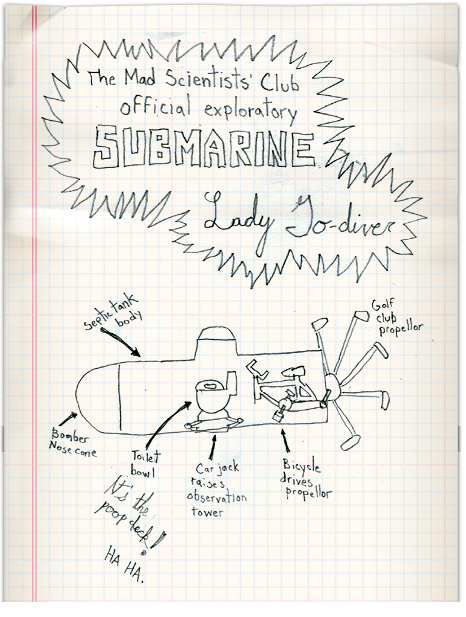 The Mad Scientists' Club
official exploratory
SUBMARINE
Lady Go-diver
Septic tank
body
Golf
club
propellor
Bomber
Nose cone
Toilet
bowl
It's the
poop deck!
HA HA.
Car jack
raises
observation
tower
Bicycle
drives
propellor